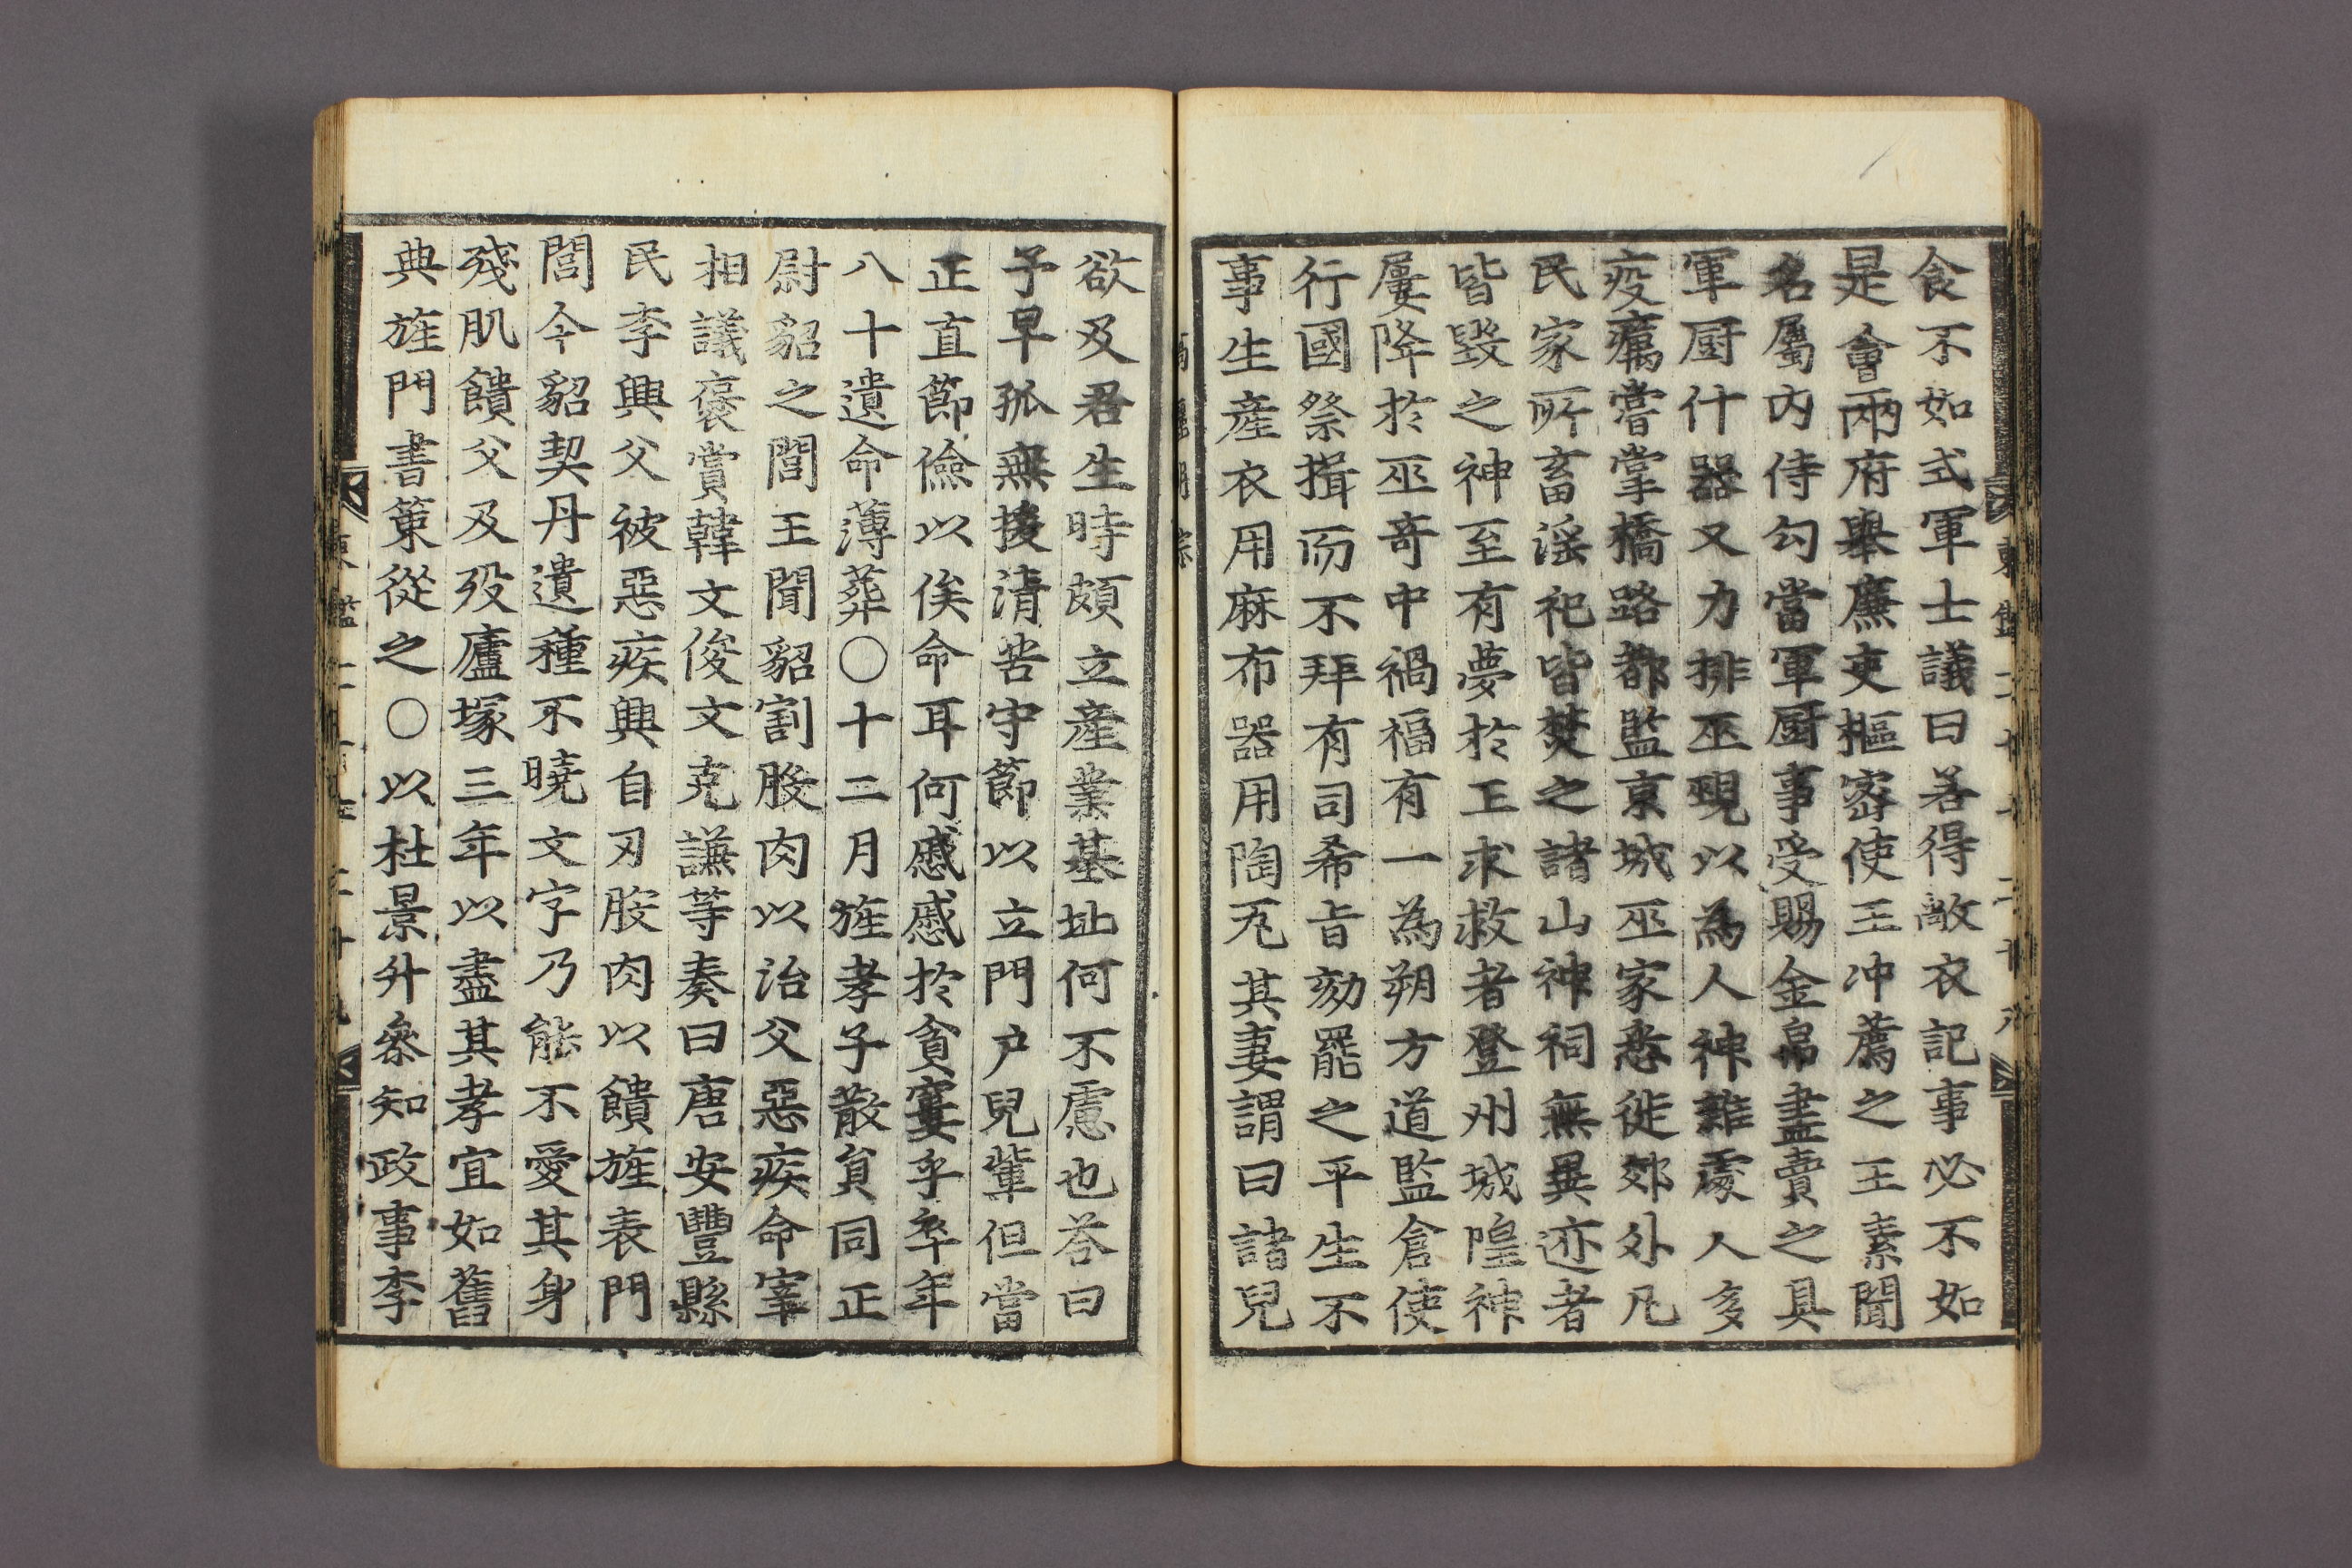 食不如式軍士議曰善得敵衣記事必不如
是會兩府舉廉吏樞密使王冲薦之王素聞
名屬内侍勾當軍厨事受賜金帛盡賣之具
軍厨什器又力排巫覡以為人神雜處人多
疫癘嘗掌橋路都監京城巫家悉徙郊外凡
民家所畜淫祀皆焚之諸山神祠無異迹者
皆毀之神至有夢於王求救者登州城隍神
屢降於巫奇中禍福有一為朔方道監倉使
行國祭揖而不拜有司希旨劾罷之平生不
事生產衣用麻布器用陶瓦其妻謂曰諸兒
欲及君生時頗立產業基址何不慮也荅曰
予早孤無援清苦守節以立門戶兒輩但當
正直節儉以俟命耳何慼慼於貧窶乎卒年
八十遺命薄葬〇十二月旌孝子散負同正
尉貂之閭王聞貂割股肉以治父惡疾命宰
相議褒賞韓文俊文克謙等奏曰唐安豐縣
民李興父被惡疾興自刃股肉以饋旌表門
閭今貂契丹遺種不曉文字乃能不愛其身
殘肌饋父及歿廬塚三年以盡其孝宜如舊
典旌門書策從之〇以杜景升叅知政事李